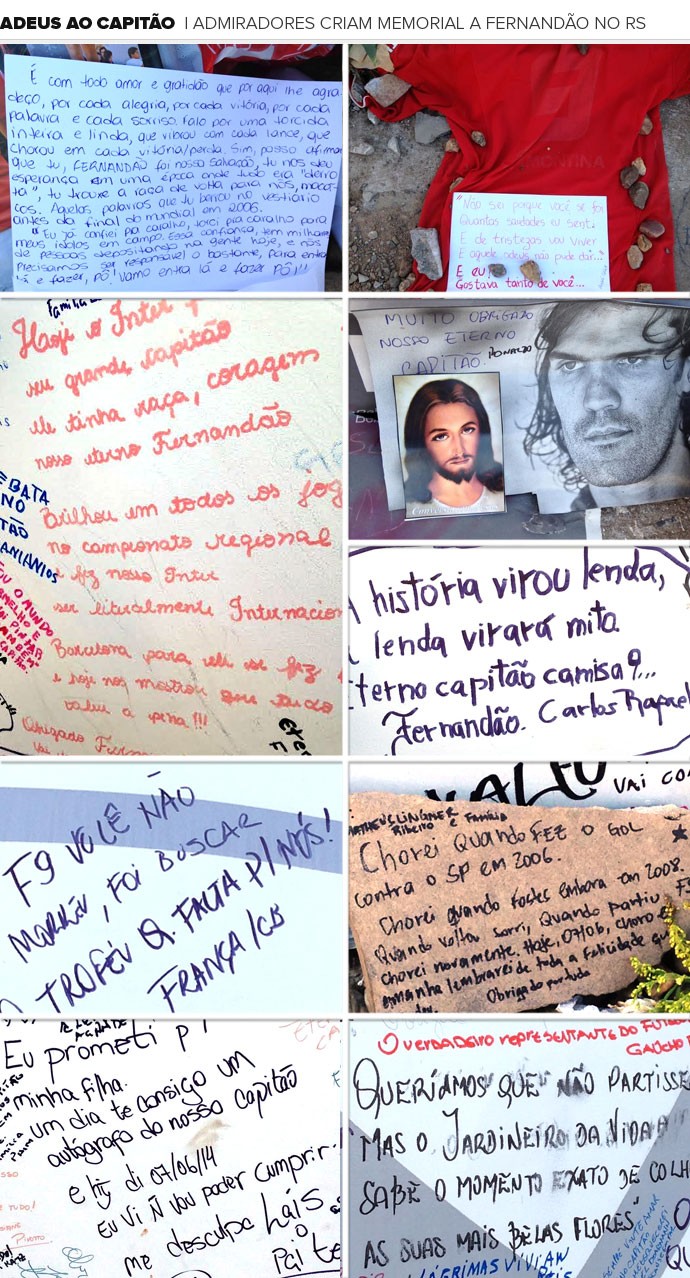 ADEUS AO CAPITÃO | ADMIRADORES CRIAM MEMORIAL A FERNANDÃO NO RS
É com todo amor e gratidão que por aqui lhe agra
deço, por cada alegria, por cada vitória, por cada
palavra e cada sorriso. Falo por uma torcida
inteira e linda, que vibrou com cada lance, que
chorou em cada vitória/perda. Sim, posso afirmar
que tu, FERNANDÃO foi nossa salvação, tu nos deu
esperança em uma época onde tudo era "derro
ta", tu trouxe a raça de volta para nós,
cos. Aquelas palavras que tu berrou no vestiário
antes da final do mundial em 2006.
"Eu já confiei pa caralho, torci pra caralho para
meus ídolos em campo. Essa confiança, tem milhares
de pessoas depositando na gente hoje, e nós
precisamos ser responsável o bastante, para entra
lá e fazer, pô! Vamo entra lá e fazer PÔ!!"
"Não sei porque você se foi
Quantas saudades eu senti
E de tristezas vou viver
E aquele adeus não pude dar..."
E eu
Gostava tanto de você...
Família
Hoje o Inter
seu grande capitão
ele tinha raça, coragem
nosso eterno Fernandão
Brilhou em todos os jog
no campeonato regional
e fez nosso Inter
ser literalmente Internacion
Barcelona para ele se fez
e hoje nos mostrou que tudo
valeu a pena!!!
Obrigado Fern
BATA
NO
TÃO
OU O MUNDO
MELHO E
PINTAR
TAMBÉM"
MUITO OBRIGADO
NOSSO ETERNO
CAPITÃO. RONALDO
história virou lenda,
lenda virará mito
terno capitão camisa 9...
Fernandão. Carlos Rafael
F9 VOCÊ NÃO
MORREU, FOI BUSCAR
TROFÉU Q. FALTA P/ NÓS!
FRANÇA/CB
VALEU
VAI CO
MATHEUS LINGNER
Ribeiro e Família
Chorei Quando FEZ O GOL
contra o SP em 2006.
Chorei quando fostes embora em 2008.
Quando voltou sorri, Quando partiu
chorei novamente. Hoje, 07/06, choro e
amanhã lembrarei de toda a felicidade q
Obrigado por tudo
Eu prometi p/
minha filha.
um dia te consigo um
autógrafo do nosso capitão
e hj dia 07/06/14
EU Vi Ñ VOU poder cumprir.
me desculpa Laís.
o Pai te
O VERDADEIRO REPRESENTANTE DO FUTEB
GAÚCHO
"QUERÍAMOS QUE NÃO PARTISSE
MAS O JARDINEIRO DA VIDA
SABE O MOMENTO EXATO DE COLH
AS SUAS MAIS BELAS FLORES"
LÁGRIMAS VIVIAN